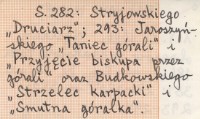 S. 282: Stryjowskiego
„Druciarz"; 293: Jaroszyń-
skiego „Taniec górali" i
„Przyjęcie biskupa przez
górali" oraz Budkowskiego
„Strzelec karpacki" i
„Smutna góralka".